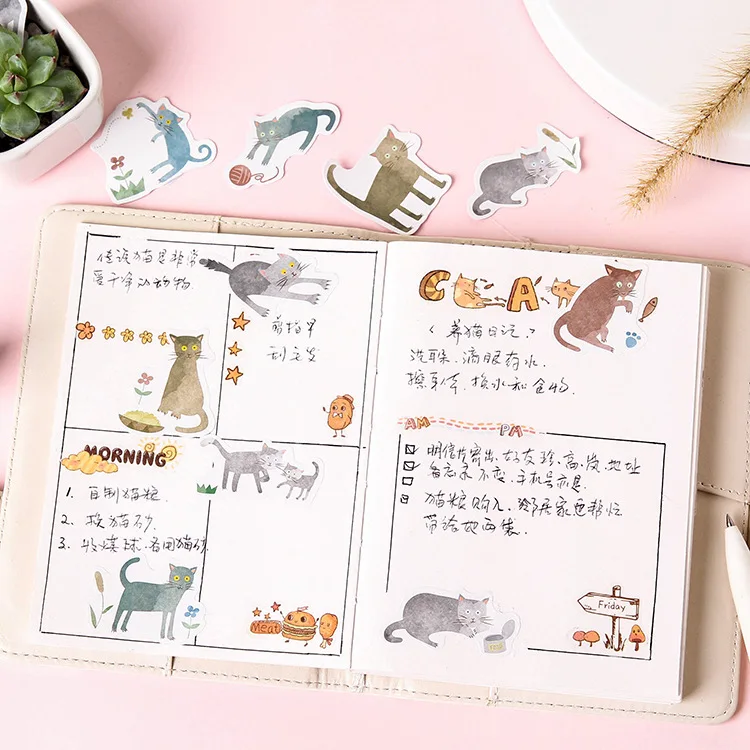 传说猫是非常
爱干净动物
剪指甲
刮毛发
MORNING
1. 自制猫粮
2. 换猫砂
3. 收集球、看用猫砂
Meat
C A
《养猫日记》
洗耳朵、滴眼药水
擦身体、换水和食物.
AM PM
明信片寄出、好友珍、高、岚、地址
备忘录不变、手机号亦是.
猫粮购入、邻居家也帮忙
带给她两袋.
Friday